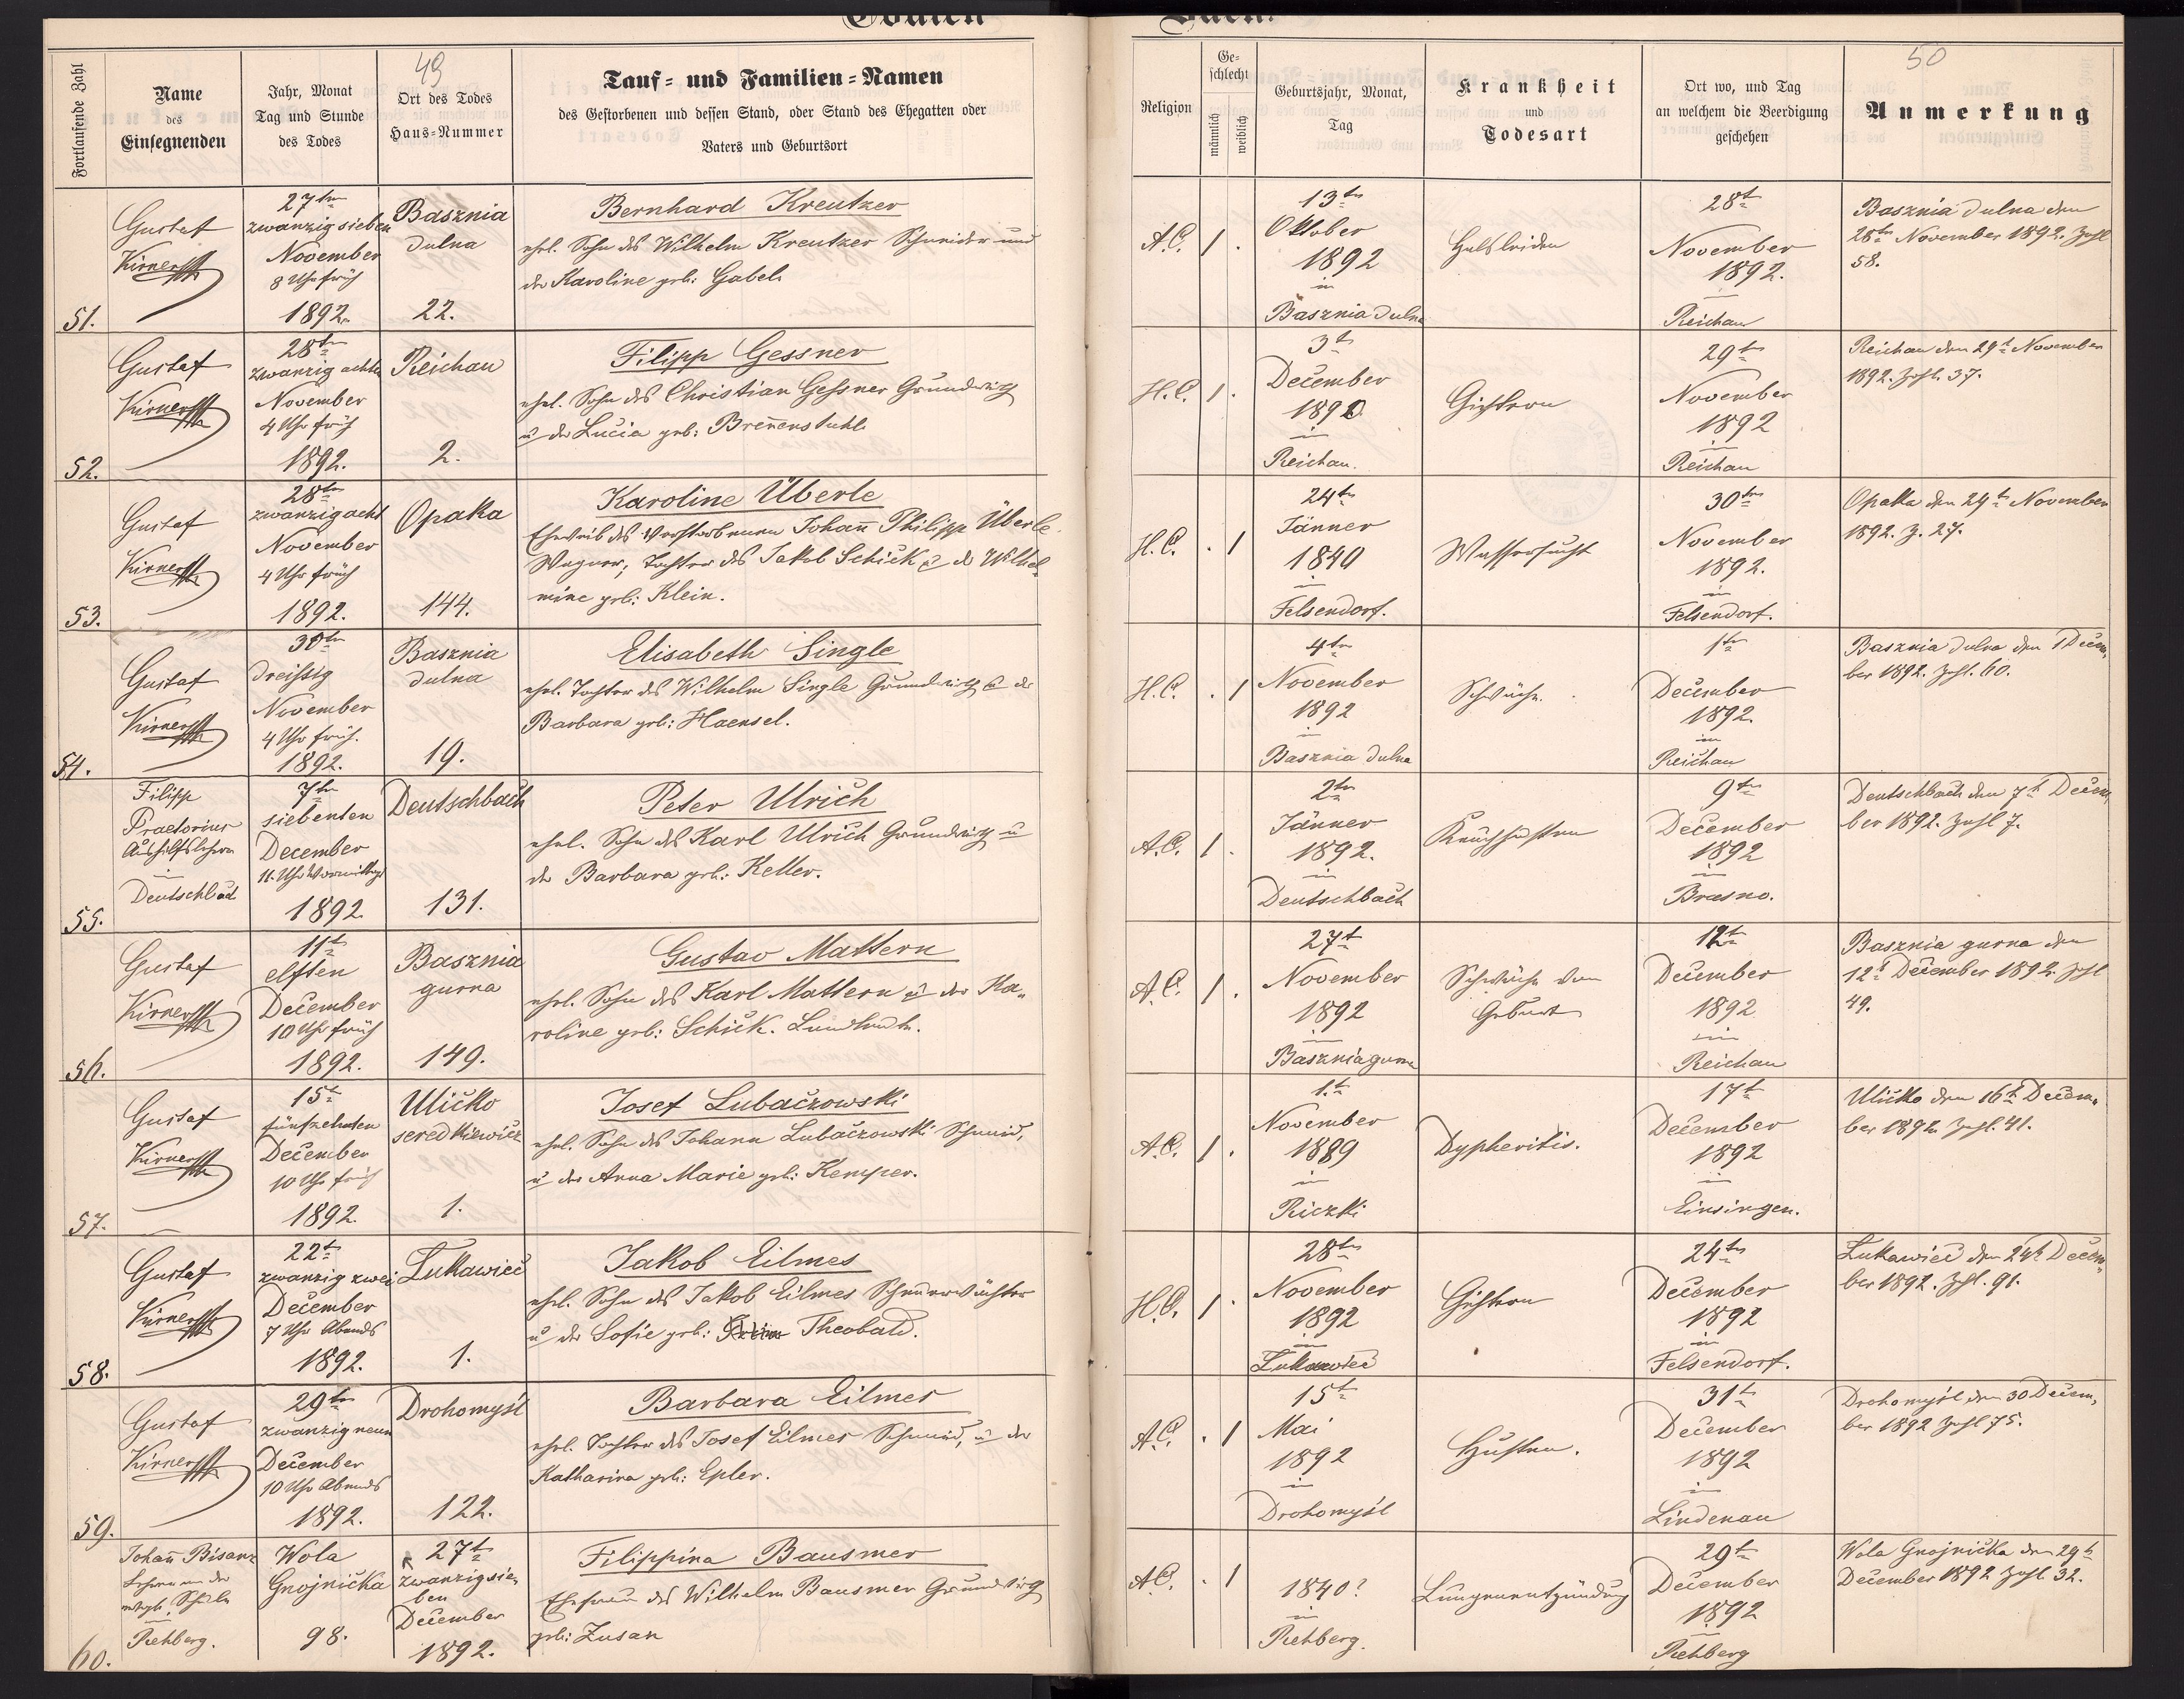 Todten
Buch.
49
50
Fortlaufende Zahl
Name
des
Einsegnenden
Jahr, Monat
Tag und Stunde
des Todes
Ort des Todes
Haus-Nummer
Tauf- und Familien-Namen
des Gestorbenen und dessen Stand, oder Stand des Ehegatten oder
Vaters und Geburtsort
Religion
Ge-
schlecht
männlich
weiblich
Geburtsjahr, Monat,
Tag
Krankheit
und
Todesart
Ort wo, und Tag
an welchem die Beerdigung
geschehen
Anmerkung
51.
Gustaf
Kirner
27ten
zwanzig sieben
November
8 Uhr früh
1892.
Basznia
dulna
22.
Bernhard Kreutzer
ehel. Sohn des Wilhelm Kreutzer Schneider und
der Karoline geb: Gabel.
A.C.
1 .
13tn
Oktober
1892
in
Basznia dulna
Halsleiden
28t
November
1892.
Reichau
Basznia dulna den
28tn November 1892. Zahl
58.
52.
Gustaf
Kirner
28tn
zwanzig achten
November
4 Uhr früh
1892.
Reichau
2.
Filipp Gessner
ehel. Sohn des Christian Gessner Grundwirth
u der Lucia geb: Brenenstuhl.
H.C.
1 .
3t
December
1890
in
Reichau.
Gichtern
29t
November
1892
in
Reichau
Reichau den 29t November
1892. Zahl. 37.
53.
Gustaf
Kirner
28tn
zwanzigacht
November
4 Uhr früh
1892.
Opaka
144.
Karoline Überle
Eheweib des verstorbenen Johan̄ Philipp Überle
Wagner, Tochter des Jakob Schick u d Wilhel
mine geb: Klein.
H.C.
. 1
24tn
Jänner
1840
in
Felsendorf.
Wassersucht
30tn
November
1892.
in
Felsendorf.
Opaka den 29tn November
1892. Z. 27.
54.
Gustaf
Kirner
30tn
dreissig
November
4 Uhr früh.
1892.
Basznia
dulna
19.
Elisabeth Single
ehel. Tochter des Wilhelm Single Grundwirth u der
Barbara geb: Haensel.
H.C.
. 1
4tn
November
1892
in
Basznia dulna
Schwäche.
1tn
December
1892.
in
Reichau
Basznia dulna den 1 Decem,
ber 1892. Zahl. 60.
55.
Filipp
Praetorius
Aushilfslehrer
in
Deutschbach
7tn
siebenten
December
11. Uhr Vormittag
1892.
Deutschbach
131.
Peter Ulrich
ehel. Sohn des Karl Ulrich Grundwirth u
der Barbara geb: Keller.
A.C.
1 .
2tn
Jänner
1892.
in
Deutschbach
Keuchhusten
9tn
December
1892
in
Brusno.
Deutschbach den 7t Decem,
ber 1892. Zahl 7.
56.
Gustaf
Kirner
11t
elften
December
10 Uhr früh
1892.
Basznia
gurna
149.
Gustav Mattern
ehel. Sohn des Karl Mattern u der Ka,
roline geb: Schick. Landleute.
A.C.
1 .
27t
November
1892
in
Basznia gurna
Schwäche von
Geburt
12t
December
1892
in
Reichau
Basznia gurna den
12t December 1892. Zahl
49.
57.
Gustaf
Kirner
15t
fünfzehnten
December
10 Uhr früh
1892.
Uličko
seredkiewicz
1.
Josef Lubačzowski
ehel. Sohn des Johann Lubačzowski Schmied,
u der Anna Marie geb: Kemper.
A.C.
1 .
1.t
November
1889
in
Riczki
Dypheritis.
17t
December
1892
in
Einsingen.
Uličko den 16t Decem,
ber 1892. Zahl. 41.
58.
Gustaf
Kirner
22t
zwanzig zwei
December
7 Uhr Abends
1892.
Lukawiec
1.
Jakob Eilmes
ehel. Sohn des Jakob Eilmes Scheuerwächter
u der Sofie geb: Theobald.
H.C.
1 .
28tn
November
1892
in
Lukawiec
Gichtern
24tn
December
1892
in
Felsendorf.
Lukawiec den 24t Decem,
ber 1892. Zahl. 91.
59.
Gustaf
Kirner
29tn
zwanzig neun
December
10 Uhr Abends
1892.
Drohomyśl
122.
Barbara Eilmes
ehel. Tochter des Josef Eilmes Schmied, u der
Katharina geb: Epler.
A.C.
. 1
15t
Mai
1892
in
Drohomyśl
Husten.
31t
December
1892
in
Lindenau
Drohomyśl den 30 Decem,
ber 1892 Zahl 75.
60.
Johan̄ Bisanz
Lehrer an der
evgl. Schule
in
Rehberg.
Wola
Gnojnička
98.
27t
zwanzigsie,
ben
December
1892.
Filippina Bausmer
Ehefrau des Wilhelm Bausmer Grundwirth
geb: Zusan
A.C.
. 1
1840?
in
Rehberg.
Lungenentzündung
29t
December
1892
Rehberg
Wola Gnojnička den 29t
December 1892 Zahl 32.